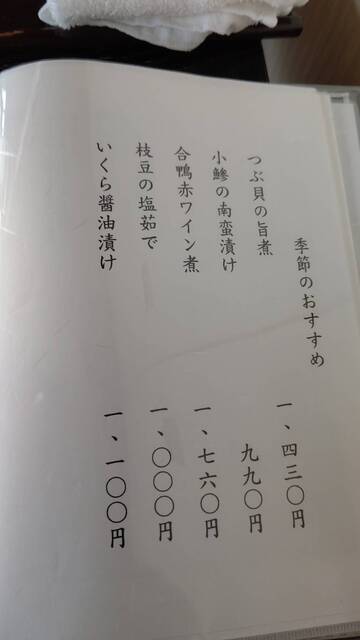 季節のおすすめ
つぶ貝の旨煮 一、四三〇円
小鯵の南蛮漬け 九九〇円
合鴨赤ワイン煮 一、七六〇円
枝豆の塩茹で 一、〇〇〇円
いくら醤油漬け 一、一〇〇円